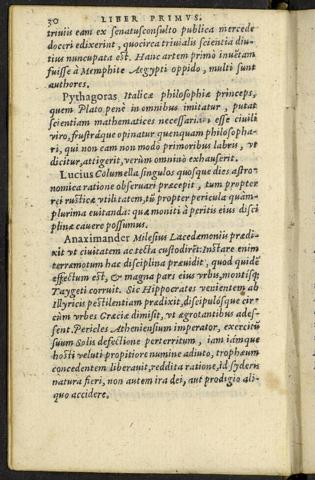 30 LIBER PRIMVS.
triviis eam ex senatusconsulto publica mercede
doceri edixerint, quocirca trivialis scientia diu-
tius nuncupata est. Hanc artem primò inuẽtam
fuisse à Memphite Aegypti oppido, multi sunt
authores.
Pythagoras Italicæ philosophiæ princeps,
quem Plato penè in omnibus imitatur, putat
scientiam mathematices necessariam esse ciuili
viro, frustráque opinatur quenquam philosopha-
ri, qui non eam non modò primoribus labris, vt
dicitur, attigerit, verùm omninò exhauserit.
Lucius Columella singulos quosque dies astro-
nomica ratione obseruari præcepit, tum propter
rei rusticæ vtilitatem, tũ propter pericula quàm-
plurima euitanda: quæ moniti à peritis eius disci
plinæ cauere possumus.
Anaximander Milesius Lacedæmoniis prædi-
xit vt ciuitatem ac tecta custodirẽt: Instare enim
terræmotum hac disciplina præuidit, quod quidẽ
effectum est, & magna pars eius vrbis, montisq;
Taygeti corruit. Sic Hippocrates venientem ab
Illyricis pestilentiam prædixit, discipulósque cir-
cùm vrbes Græciæ dimisit, vt ægrotantibus ades-
sent. Pericles Atheniensium imperator, exercitũ
suum Solis defectione perterritum, iam iámque
hosti veluti propitiore numine adiuto, trophæum
concedentem liberauit, reddita ratione, id sydern
natura fieri, non autem ira dei, aut prodigio ali-
quo accidere.